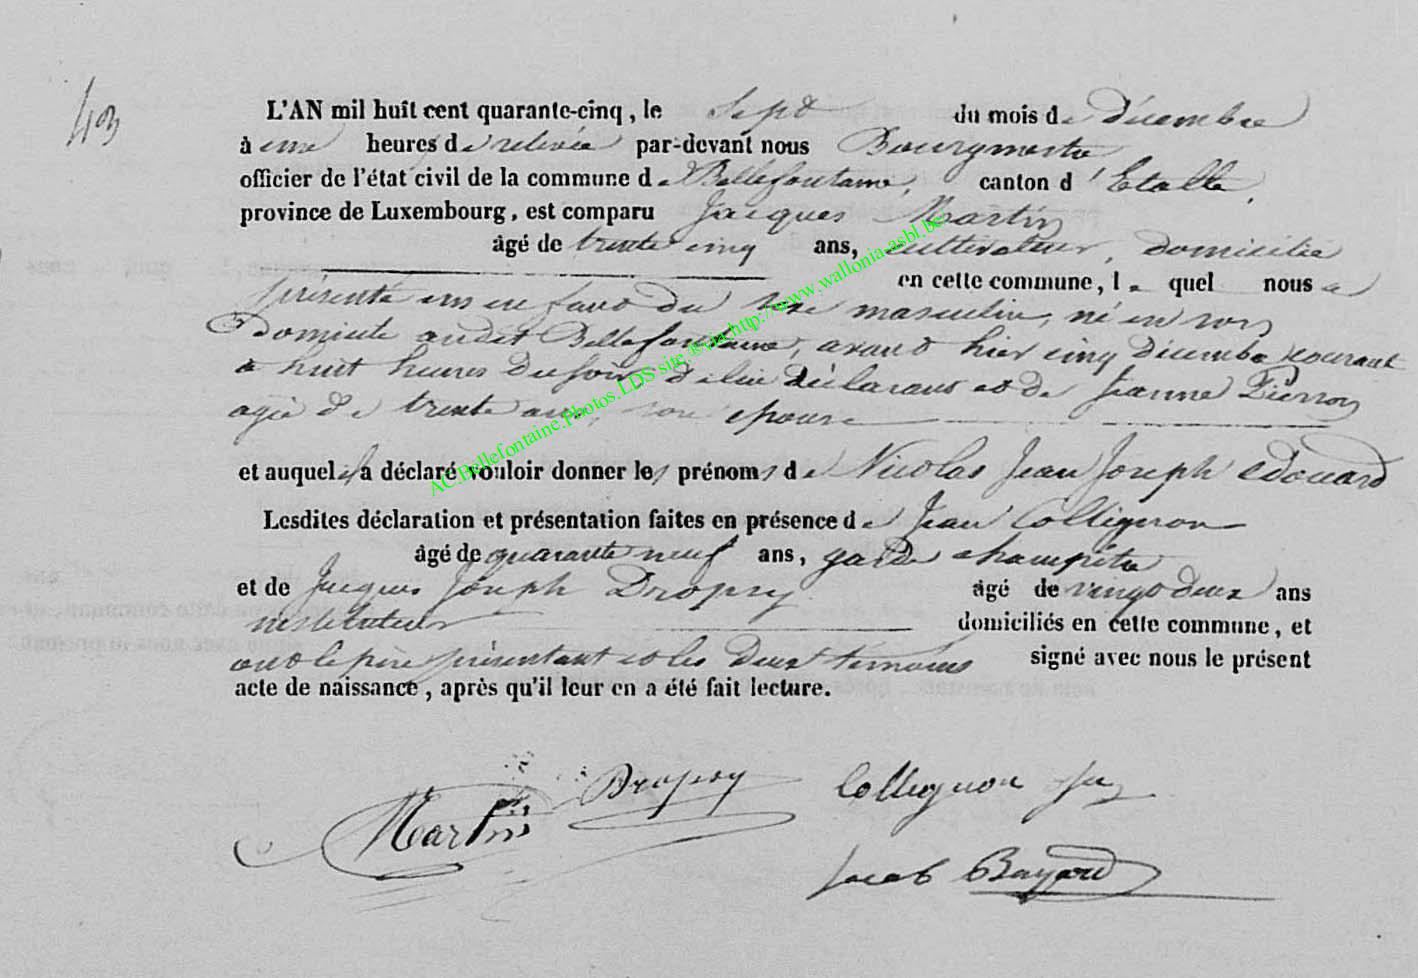 43
L'AN mil huit cent quarante-cinq, le sept du mois de décembre
à une heures de relevée par-devant nous Bourgmestre
officier de l'état civil de la commune de Bellefontaine, canton d'Etalle,
province de Luxembourg, est comparu Jacques Martin
âgé de trente cinq ans, cultivateur, domicilié
en cette commune, lequel nous a
présenté un enfant du sexe masculin, né en son
Domicile audit Bellefontaine, avant hier cinq décembre courant
à huit heures du soir de lui déclarant et de Jeanne Pierron
agée de trente ans, son épouse
et auquel il a déclaré vouloir donner les prénoms de Nicolas Jean Joseph Edouard
Lesdites déclaration et présentation faites en présence de Jean Collignon
âgé de quarante neuf ans, garde champêtre
et de Jacques Joseph Dropsy âgé de vingt deux ans
instituteur domiciliés en cette commune, et
ont le père présentant et les deux témoins signé avec nous le présent
acte de naissance, après qu'il leur en a été fait lecture.
Martin Dropsy Collignon
Jacob Bayard
AC.Bellefontaine.Photos.LDS site @via http://www.wallonia-asbl.be/